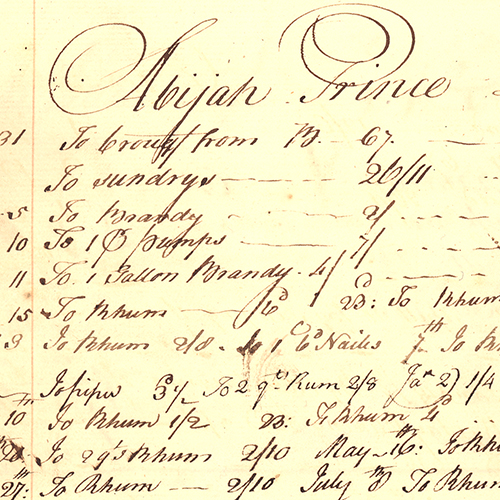 Abijah Prince
31 To brought from B. 67.
To sundrys 26/11
5 To Brandy 2/
10 To 1 P pumps 7/
11 To 1 Gallon Brandy 4/
15 To Rhum 6d 23: To Rhum
9 To Rhum 2/8 To 1 C 6d Nails 7th To R
To pipes 3d To 2 qts Rum 2/8 Jar 2) 1/4
10 To Rhum 1/2 23: To Rhum 4d
20 To 2 qts Rhum 2/10 May 16th: To Rhu
27th: To Rhum 2/10 July 8th To Rhum